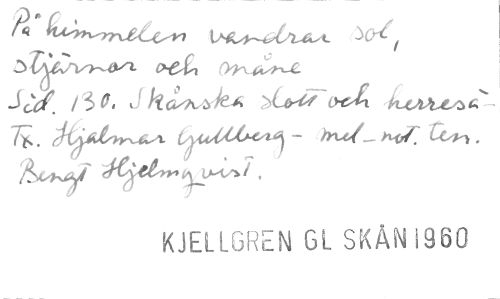 På himmelen vandrar sol,
stjärnor och måne
Sid. 130. Skånska slott och herresä-
Tx. Hjalmar Gullberg - mel-not. ten.
Bengt Hjelmqvist.
KJELLGREN GL SKÅN 1960